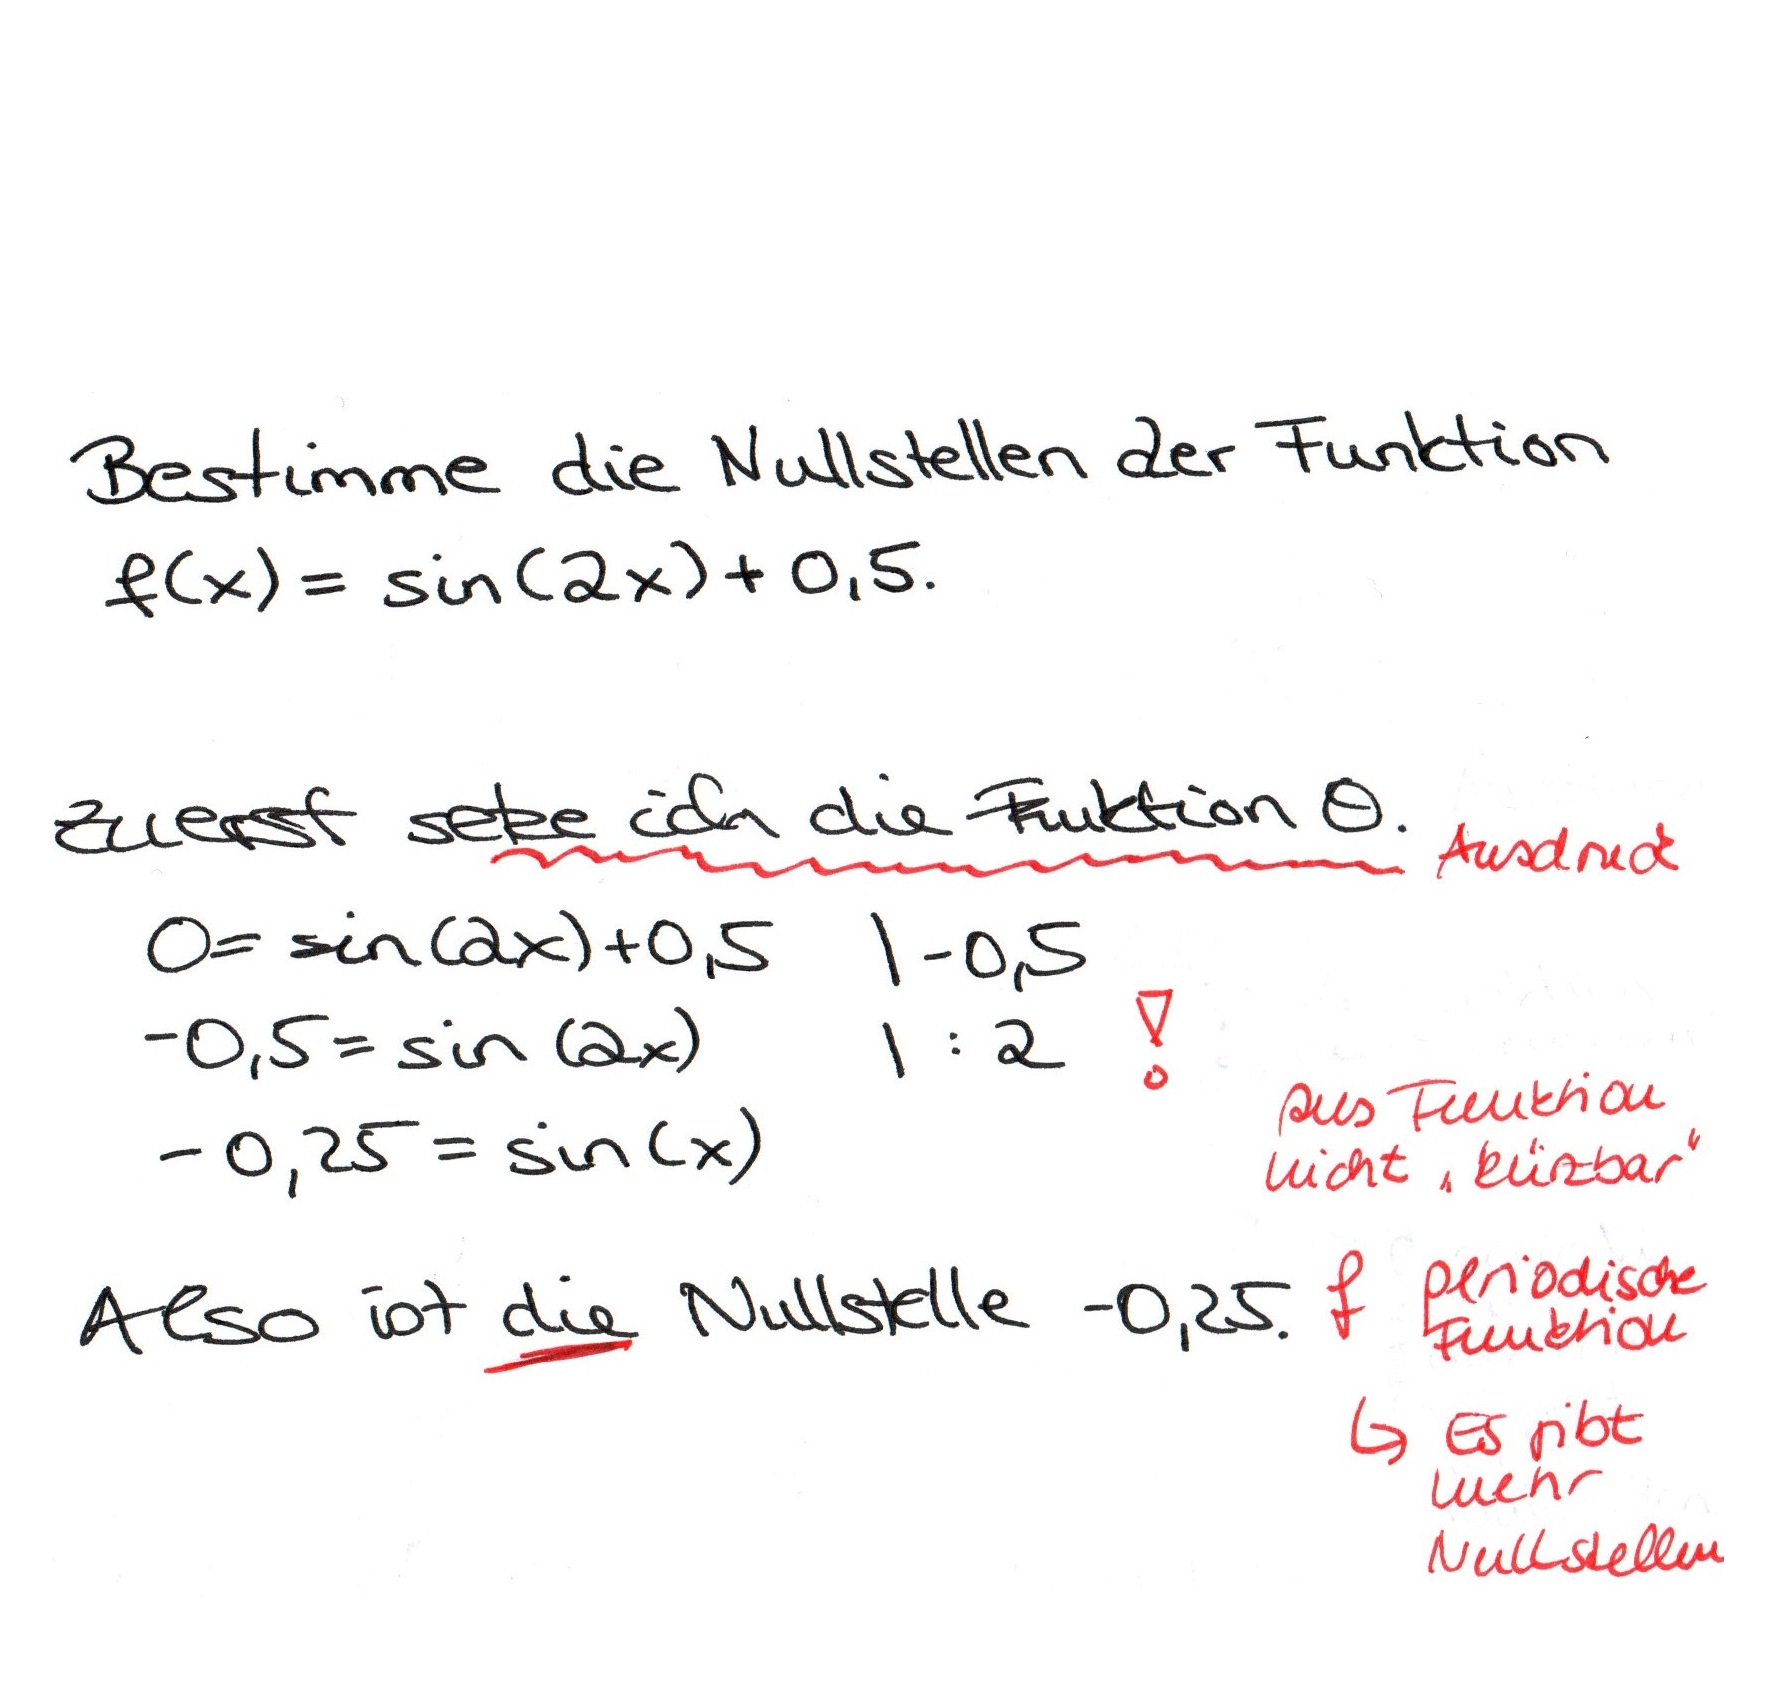 Bestimme die Nullstellen der Funktion
f(x) = sin(2x) + 0,5.
Zuerst setze ich die Fuktion 0. Ausdruck
0 = sin(2x) + 0,5 | -0,5
-0,5 = sin(2x) | : 2 !
aus Funktion
-0,25 = sin(x) nicht „kürzbar“
Also ist die Nullstelle -0,25. f periodische
Funktion
↳ Es gibt
mehr
Nullstellen